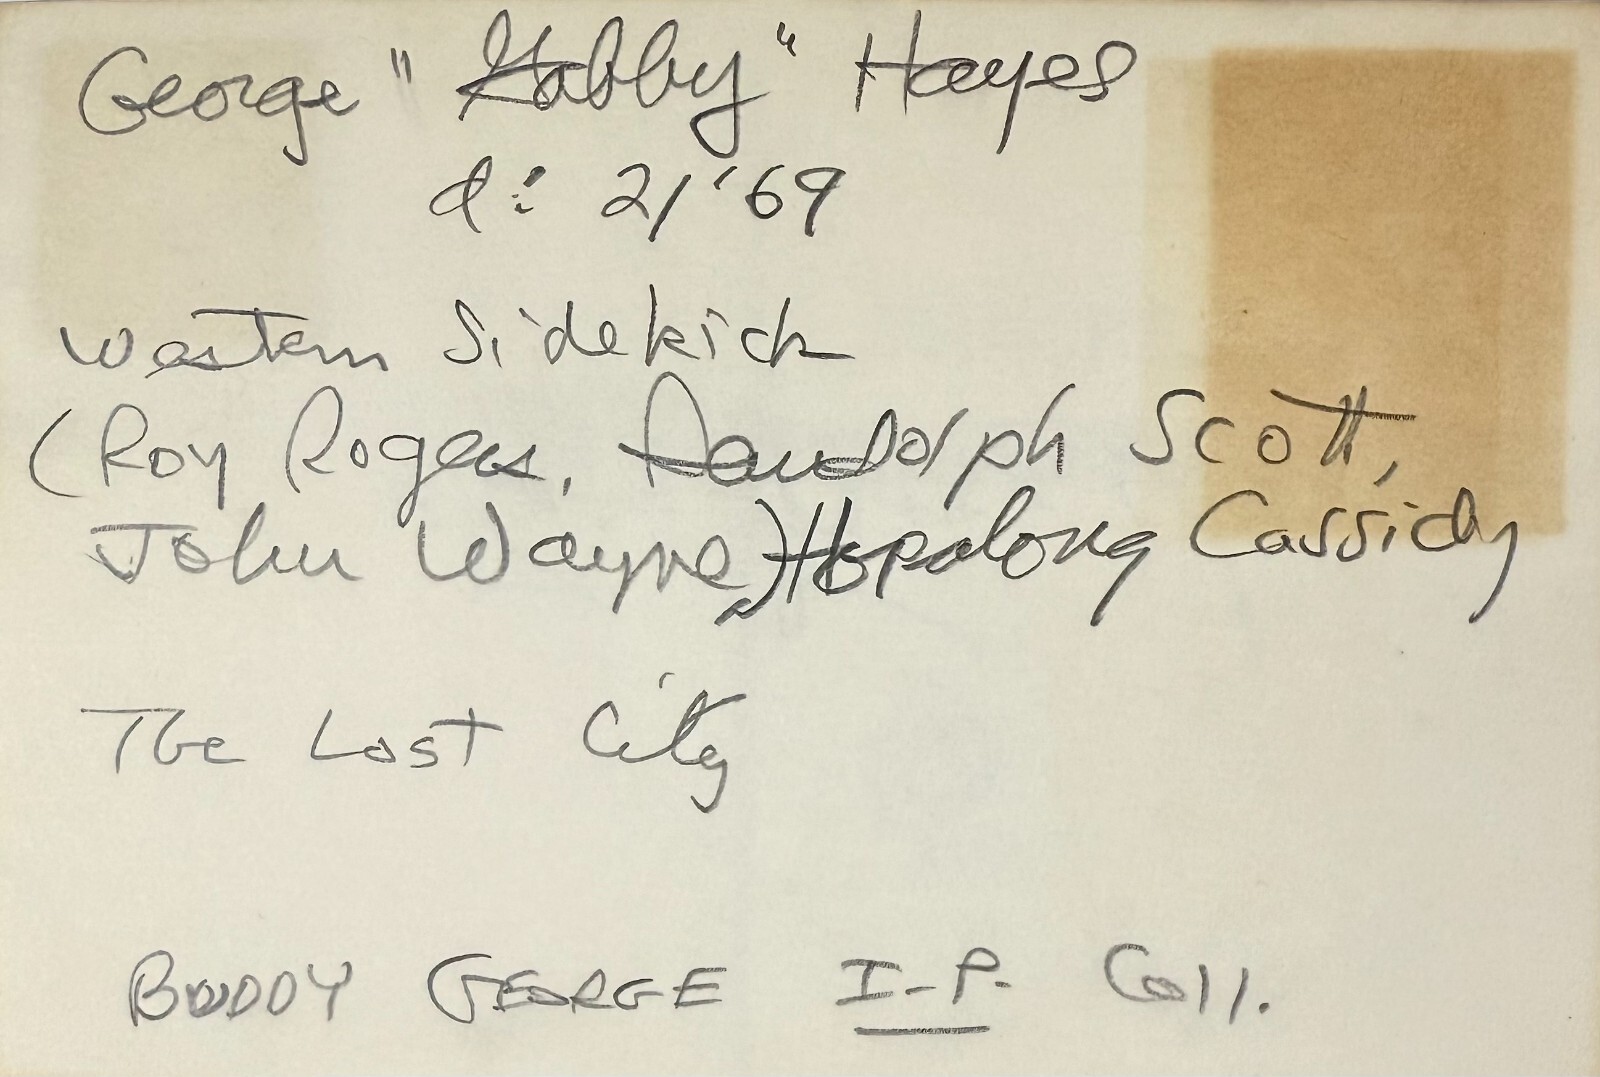 George "Gabby" Hayes
d: 2/'69
Western Sidekick
(Roy Rogers, Randolph Scott,
John Wayne,) Hopalong Cassidy
The Lost City
BUDDY GEORGE I-P. Coll.